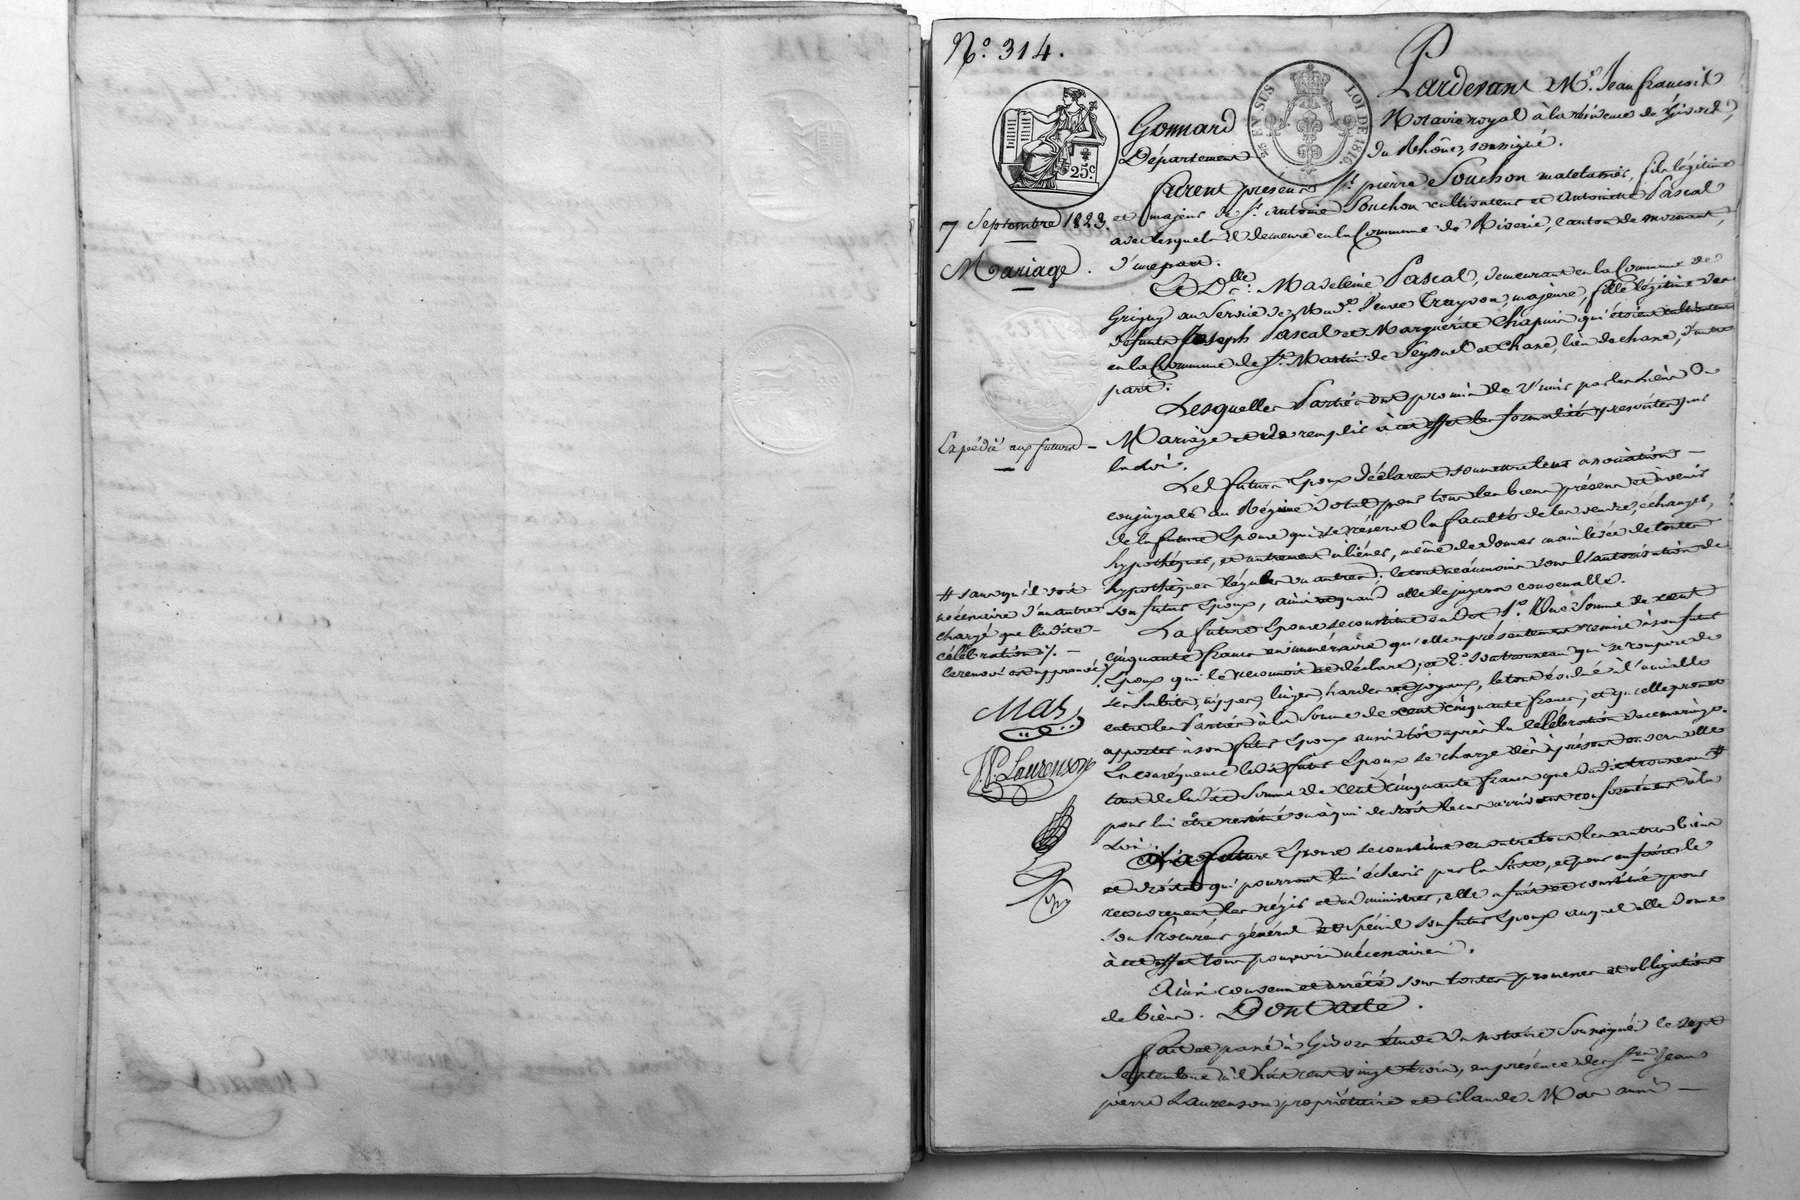 N.º 314.
Pardevant M.e Jean françois
Gonnard
Notaire royal à la résidence de Givors,
Département
du Rhône, soussigné.
25 c
25 EN SUS
LOI DE 1816.
furent présens S.r pierre Souchon matelassier, fils légitime
7 Septembre 1823.
et majeur de S.r Antoine Souchon cultivateur et Antoinette Pascal
avec lesquels il demeure en la Commune de Riverie, Canton de mornant,
Mariage.
d'une part.
Et D.lle Madeleine Pascal, demeurant en la Commune de
Grigny au service de Mad.e Veuve Trayvon, majeure, fille légitime des
défunts Joseph Pascal et Marguerite Chapuis qui étoient cultivateurs
en la Commune de S.t Martin de Seyssuel et Chane, lieu de chane, d'autre
part.
Lesquelles Parties ont promis de s'unir par les liens du
Expédié aux futurs
Mariage et de remplir à cet effet les formalités prescrites par
la loi.
Les futurs Epoux déclarent soumettre leur association
conjugale au Régime dotal pour tous les biens présens et à venir
de la future Epouse qui se réserve la faculté de les vendre, échanger,
hypothéquer, et autrement aliéner, même de donner mainlevée de toutes
hypothèques légales ou autres; le tout néanmoins sous l'autorisation de
son futur Epoux, ainsi et quand elle le jugera convenable.
# sans qu'il soit
nécessaire d'un autre
chargé que ladite
célébration %.
ce renvoi est approuvé
Mas
J.P. Laurenson
La future Epouse se constitue en dot 1.º Une Somme de cent
cinquante francs en numéraire qu'elle a présentement remise à son futur
Epoux qui le reconnoît et déclare; et 2.º son trousseau qui se compose de
ses habits, nippes, linges, hardes et joyaux, le tout évalué à l'amiable
entre les Parties à la Somme de cent cinquante francs, et qu'elle promet
apporter à son futur Epoux aussitôt après la célébration du mariage.
En conséquence ledit futur Epoux se charge dès à présent envers elle
tant de ladite Somme de cent cinquante francs que dudit trousseau #
pour lui être restitué ou à qui de droit le cas arrivant conformément à la
Loi.
La future Epouse se constitue en outre tous les autres biens
et droits qui pourront lui échoir par la suite, et pour en faire le
recouvrement, les régir et administrer, elle a fait et constitué pour
son Procureur général et spécial son futur Epoux auquel elle donne
à cet effet tous pouvoirs nécessaires.
Ainsi convenu et arrêté sous toutes promesses et obligations
de biens. Dont Acte.
Fait et passé à Givors étude du notaire Soussigné le sept
Septembre mil huit cent vingt trois, en présence de S.rs Jean
pierre Laurenson propriétaire et Claude Mas aussi